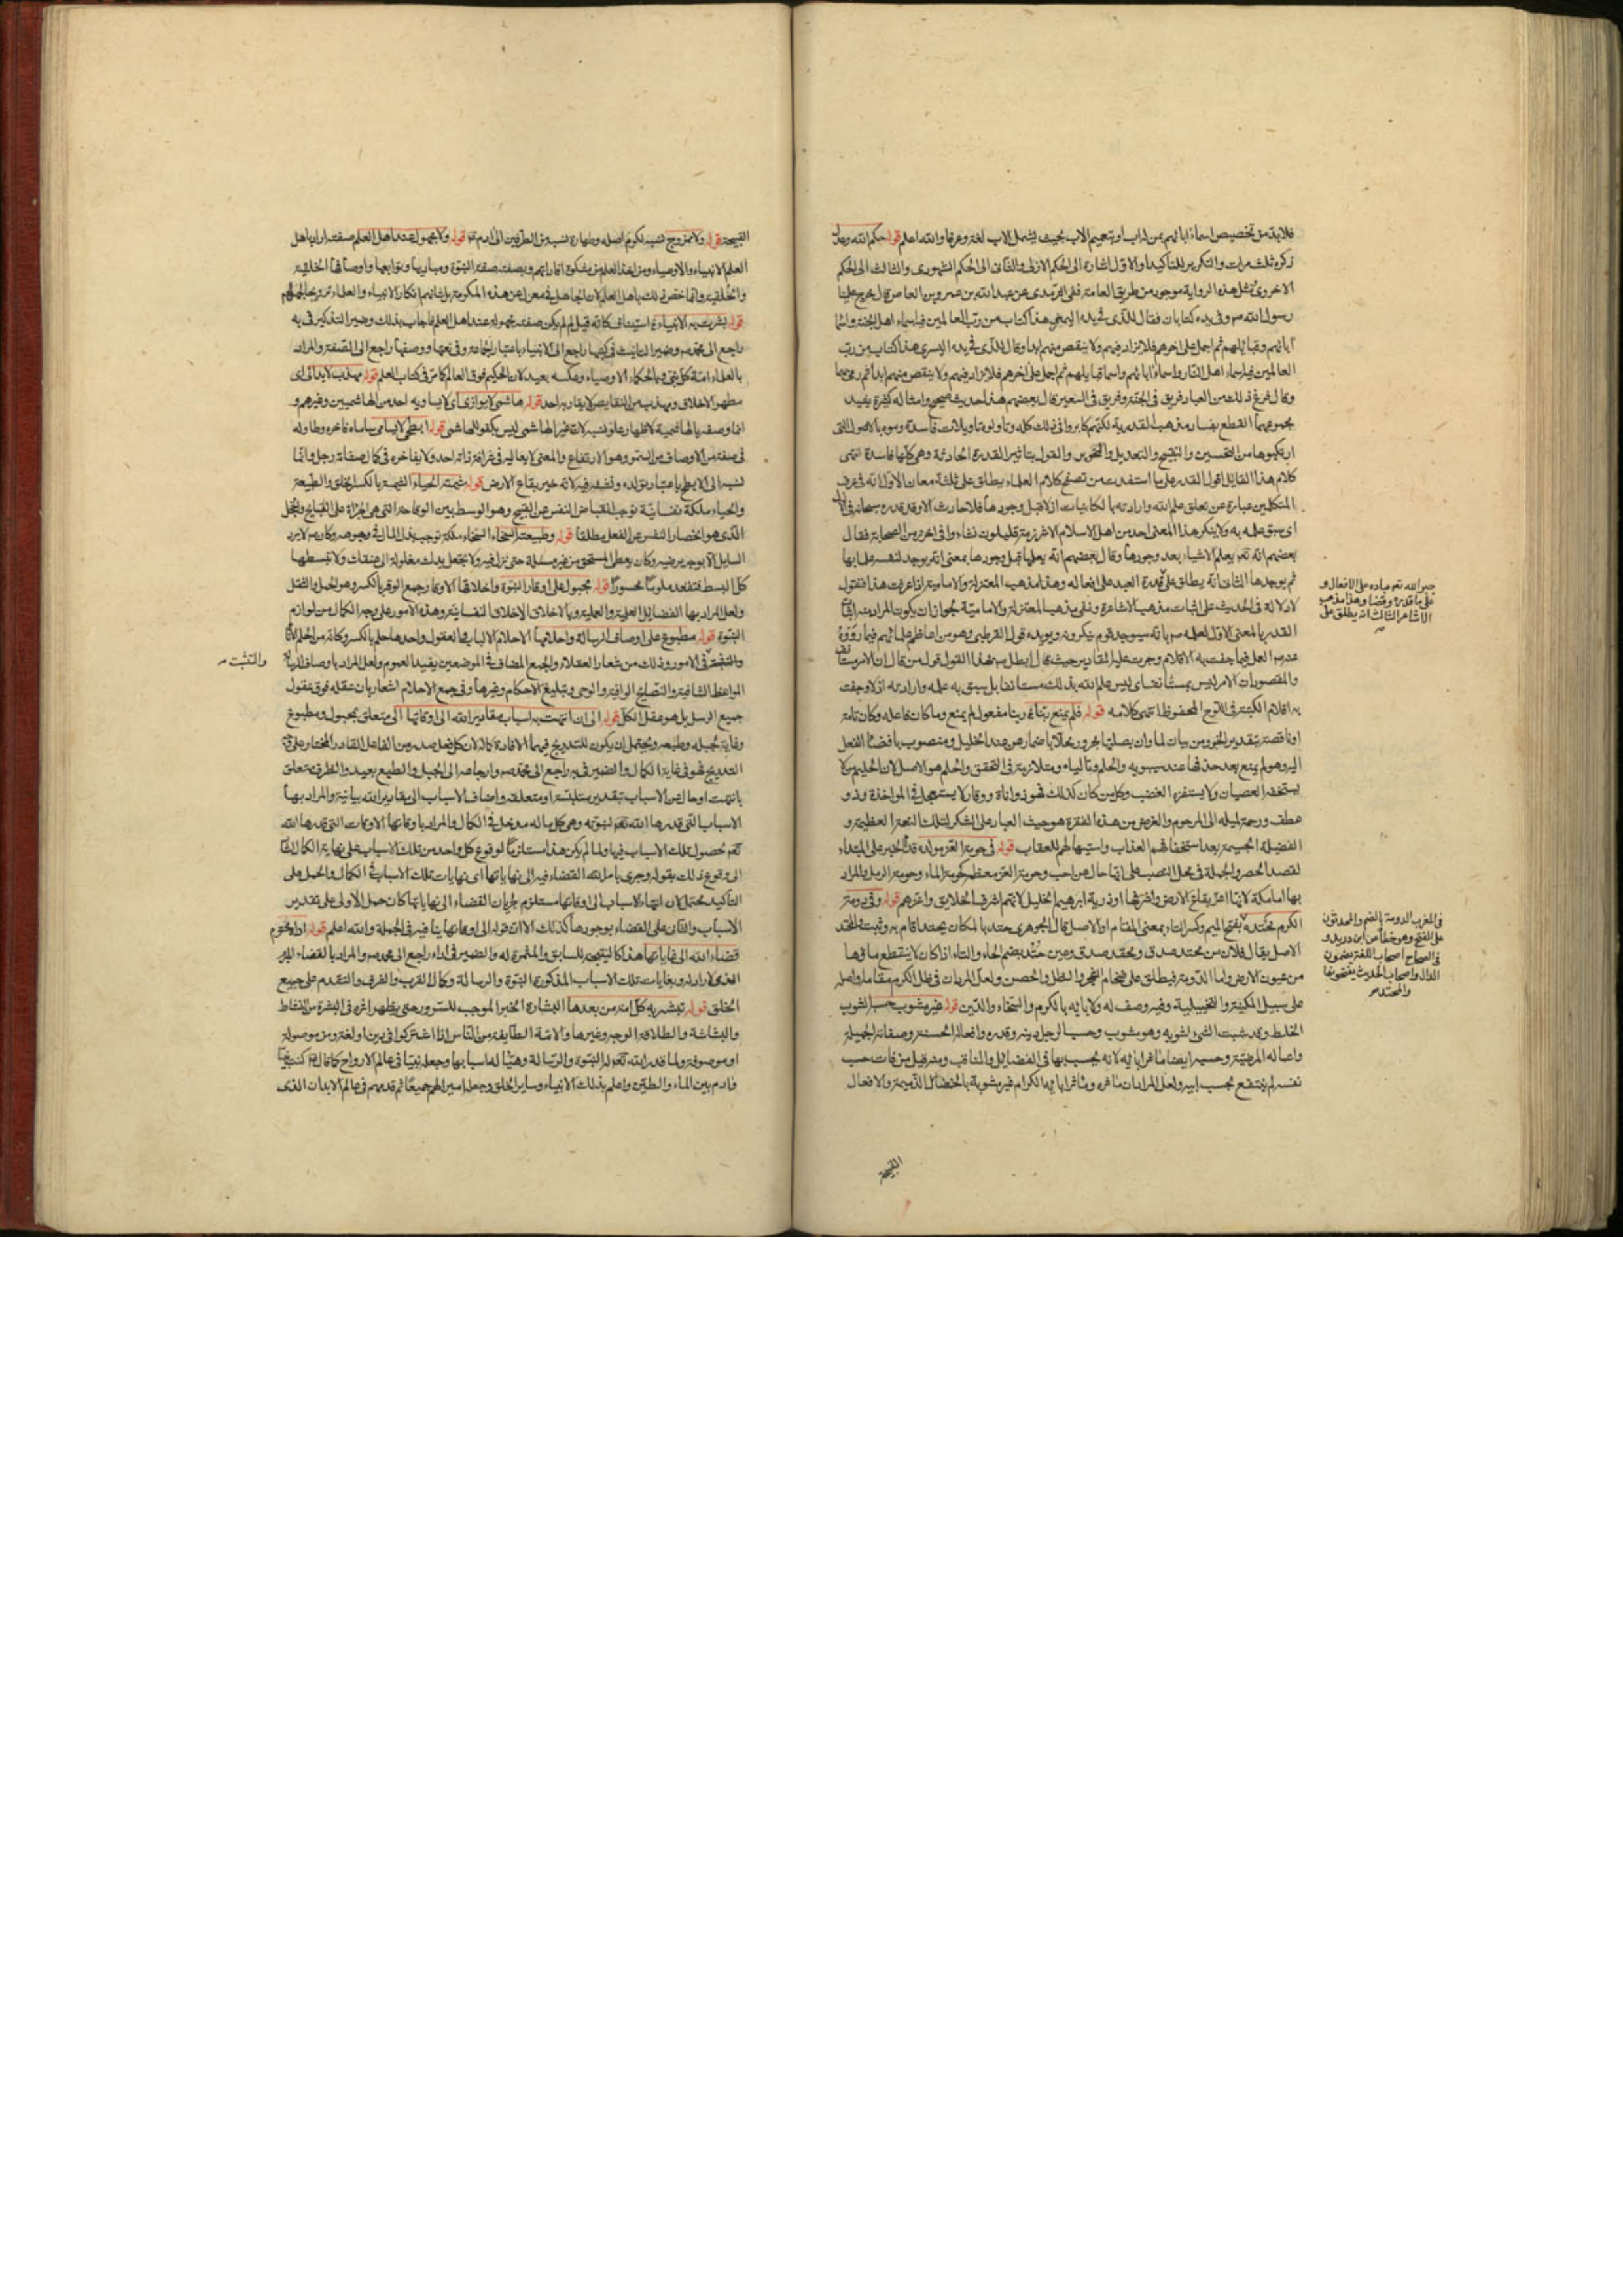 فلابد من تخصيص اسماء ابائهم بمن اب او بتعميم الاب بحيث يشمل الاب لغة وعرفا والله اعلم قوله حكم الله وعدل
ذكره ثلث مرات والتكرير للتأكيد او الاول اشارة الى الحكم الازلى والثانى الى الحكم الشهورى والثالث الى الحكم
الاخروى مثل هذه الرواية موجود من طريق العامة ففى الترمذى عن عبد الله بن عمرو بن العاص قال خرج علينا
رسول الله ص وفى يده كتابان فقال للذى فى يده اليمنى هذا كتاب من رب العالمين فيه اسماء اهل الجنة واسماء
آبائهم وقبائلهم ثم اجمل على اخرهم فلا يزاد فيهم ولا ينقص منهم ابدا وقال للذى فى يده اليسرى هذا كتاب من رب
العالمين فيه اسماء اهل النار واسماء ابائهم واسماء قبايلهم ثم اجمل على اخرهم فلا يزاد فيهم ولا ينقص منهم ابدا ثم رمى بهما
وقال فرغ ربك من العباد فريق فى الجنة وفريق فى السعير قال بعضهم هذا حديث صحيح وامثاله كثيرة يفيد
مجموعها القطع بفساد مذهب القدرية لكنهم كابروا فى ذلك كله وتاولوه تاويلات فاسدة وموه بالاصول التى
ارتكبوها من التحسين والتقبيح والتعديل والتجوير والقول بتاثير القدرة الحادثة وهى كلها فاسدة انتهى
كلام هذا القايل اقول القدر على ما استفدت من تصفح كلام العلماء يطلق على ثلثة معان الاول انه فى عرف
المتكلمين عبارة عن تعلق علم الله وارادته بالكائنات ازلا قبل وجودها فلا حادث الا وقد قدره سبحانه فى الازل
اى سبق علمه به ولا ينكر هذا المعنى احد من اهل الاسلام الا شرذمة قليلون نشاءوا فى اخر زمن الصحابة فقال
بعضهم انه تعم يعلم الاشياء بعد وجودها وقال بعضهم انه يعلمها قبل وجودها بمعنى انه يوجد لنفسه علما بها
ثم يوجدها الثانى انه يطلق على قدرة العبد على افعاله وهذا مذهب المعتزلة والامامية اذا عرفت هذا فنقول
لا دلالة فى الحديث على اثبات مذهب الاشاعرة ونفى مذهب المعتزلة والامامية لجواز ان يكون المراد منه اثبات
القدر بالمعنى الاول لعلمه ص بانه سيوجد قوم ينكرونه ويويده قول القرطبى وهو من اعاظم علمائهم فيما رووه
عنه ص العمل فيما جفت به الاقلام وجرت عليه المقادير حيث قال ابطل ص بهذا القول قول من قال ان الامر مستانف
والمقصود ان الامر ليس بمستانف اى ليس علم الله بذلك مستانفا بل سبق به علمه وارادته ازلا وجفت
به اقلام الكتبة فى اللوح المحفوظ انتهى كلامه قوله فلم يمنع ربنا ربنا مفعول لم يمنع وما كان فاعله وكان تامة
او ناقصة بتقدير الخبر ومن بيان لما وان بصلتها مجرور محلا باضمار عن عند الخليل ومنصوب بافضاء الفعل
اليه وهو لم يمنع بعد حذفها عند سيبويه والحلم والاناة متلازمة فى التحقق والحلم هو الاصل لان الحليم من لا
يستخفه العصيان ولا يستفزه الغضب وكل من كان كذلك فهو ذو اناة ووقار لا يستعجل فى المواخذة وذو
عطف ورحمة لميله الى المرحوم والغرض من هذه الفقرة هو حيث العباد على الشكر لتلك النعمة العظيمة و
الفضيلة الجسيمة بعد استحقاقهم العذاب واستيهالهم للعقاب قوله فى حومة العز مولده قدم الخبر على المبتداء
لقصد الحصر والجملة فى محل النصب على انها حال عن احب وحومة العز معظم كحومة الماء وحومة الرمل والمراد
بها اما مكة لانها اعز بقاع الارض واشرفها او ذرية ابرهيم الخليل لانهم اشرف الخلايق واعزهم قوله وفى دومة
الكرم محتده بفتح الميم وكسر التاء بمعنى المقام او الاصل قال الجوهرى حتد بالمكان يحتد اقام به وثبت والمحتد
الاصل يقال فلان من محتد صدق ومحفد صدق وعين حتد بضم الحاء والتاء اذا كان لا ينقطع ماؤها
من عيون الارض واما الدومة فيطلق على ضخام الشجر والظل والحصن ولعل المراد ان فى ظل الكرم مقامه واصله
على سبيل المكنية والتخييلية وفيه وصف له ولابايه بالكرم والسخاء والدين قوله غير مشوب حسبه الشوب
الخلط وقد شبت الشئ اشوبه وهو مشوب وحسب الرجل دينه وقدره وافعاله الحسنة وصفاته الجميلة
واعماله المرضية وحسبه ايضا مآثر ابايه لانه يحسب بها فى الفضايل والمناقب ومنه قيل من فات حسب
نفسه لم ينتفع بحسب ابيه ولعل المراد ان مآثره ومآثر ابايه الكرام غير مشوبة بالخصال الذميمة والافعال
القبيحة
جبر الله تعم عباده على الافعال و
على ما قدره وقضا وهذا مذهب
الاشاعرة الثالث انه يطلق على
فى المغرب الدومة بالضم والمحدثون
على الفتح وهو خطأ عن ابن دريد و
فى الصحاح اصحاب اللغة يضمون
الدال واصحاب الحديث يفتحونها
والمحتد
القبيحة قوله ولا ممزوج نسبه لكرم اصله وطهارة نسبه من الطرفين الى ادم ع قوله ولا مجهول عند اهل العلم صفته اراد باهل
العلم الانبياء والاوصياء ومن اخذ العلم من مشكوة انوارهم وبصفته صفة النبوة ومباديها وتوابعها واوصافها الخلقية
والخلقية وانما خص ذلك باهل العلم لان الجاهل فى معزل عن هذه المكرمة
قوله بشرت به الانبياء استيناف كانه قيل لم لم يكن صفته مجهولة عند اهل العلم فاجاب بذلك وضمير التذكير فى به
راجع الى محمد ص وضمير التانيث فى كتبها راجع الى الانبياء باعتبار الجماعة وفى نعتها ووصفها راجع الى الصفة والمراد
بالعلماء امة كل نبى وبالحكماء الاوصياء وعكسه بعيد لان الحكيم فوق العالم كما مر فى كتاب العلم قوله مهذب لا يدانى اى
مطهر الاخلاق ومهذب من النقايص لا يقاربه احد قوله هاشمى لا يوازى اى لا يساويه احد من الهاشميين وغيرهم و
انما وصفه بالهاشمية لاظهار علو نسبه لان غير الهاشمى ليس بكفو للهاشمى قوله ابطحى لا يسامى ساماه فاخره وطاوله
فى صفة من الاوصاف من السمو وهو الارتفاع والمعنى لا يعاليه فى عزافة ذاته احد ولا يفاخره فى كمال صفاته رجل وانما
نسبه الى الابطح باعتبار تولده ونشوه فيه لانه خير بقاع الارض قوله شيمته الحياء الشيمة بالكسر الخلق والطبيعة
والحياء ملكة نفسانية توجب انقباض النفس عن القبيح وهو الوسط بين الوقاحة التى هى الجرأة على القبايح والخجل
الذى هو انحصار النفس عن الفعل مطلقا قوله وطبيعته السخاء السخاء ملكة توجب بذل المال فى وجوهه وكان ص لا يرد
السايل الا بوجه يرضيه وكان يعطى المستحق من غير مسئلة حتى نزل فيه ولا تجعل يدك مغلولة الى عنقك ولا تبسطها
كل البسط فتقعد ملوما محسورا قوله مجبول على اوقار النبوة واخلاقها الاوقار جمع الوقر بالكسر وهو الحمل والثقل
ولعل المراد بها الفضايل العلمية والعملية وبالاخلاق الاخلاق النفسانية وهذه الامور على وجه الكمال من لوازم
النبوة قوله مطبوع على اوصاف الرسالة واحلامها الاحلام الالباب والعقول واحدها حلم بالكسر وكانه من الحلم الاناة
والتثبت فى الامور وذلك من شعار العقلاء والجمع المضاف فى الموضعين يفيد العموم ولعل المراد باوصاف الرسالة
المواعظ الشافية والنصايح الوافية والوحى وتبليغ الاحكام وغيرها وفى جمع الاحلام اشعار بان عقله فوق عقول
جميع الرسل بل هو عقل الكل قوله الى ان انتهت به اسباب مقادير الله الى اوقاتها الى متعلق بمجبول ومطبوع
وغاية لجبله وطبعه ويحتمل ان يكون للتدريج فيهما لافادة كماله لان كل فعل صدر من الفاعل القادر المختار على وجه
التدريج فهو فى غاية الكمال والضمير فى به راجع الى محمد ص وارجاعه الى الجبل والطبع بعيد والظرف متعلق
بانتهت او حال عن الاسباب بتقدير متلبسة او متعلقة واضاف الاسباب الى مقادير الله بيانية والمراد بها
الاسباب التى قدرها الله تعم لنبوته وهى كل ما له مدخل فى الكمال والمراد باوقاتها الاوقات التى قدرها الله
تعم لحصول تلك الاسباب فيها ولما لم يكن هذا مستلزما لوقوع كل واحد من تلك الاسباب على نهاية الكمال اشار
الى وقوع ذلك بقوله وجرى بامر الله القضاء فيه الى نهاياتها اى نهايات تلك الاسباب فى الكمال والحمل على
التأكيد محتمل لان انتهاء الاسباب الى اوقاتها مستلزم لجريان القضاء الى نهاياتها كما كان حمل الاولى على تقدير
الاسباب والثانى على القضاء بوجودها كذلك الا ان قوله الى اوقاتها ينافيه فى الجملة والله اعلم قوله اداه محتوم
قضاء الله الى غاياتها هذا كالنتيجة للسابق والمثمرة له والضمير فى اداه راجع الى محمد ص والمراد بالقضاء المبرم
الذى لا راد له وبغايات تلك الاسباب المذكورة النبوة والرسالة وكمال القرب والشرف والتقدم على جميع
الخلق قوله تبشر به كل امة من بعدها البشارة الخبر الموجب للسرور حتى يظهر اثره فى البشرة من النشاط
والبشاشة والطلاقة الوجه وغيرها والامة الطايفة من الناس اذا اشتركوا فى دين او لغة ومن موصولة
او موصوفة ولما قدر الله تعم له النبوة والرسالة وهيأ له اسبابها وجعله نبيا فى عالم الارواح كما قال ص كنت نبيا
وادم بين الماء والطين واعلم بذلك الانبياء وساير الخلق وجعله اميرا لهم جميعا ثم قدمهم فى عالم الابدان الذى
والتثبت